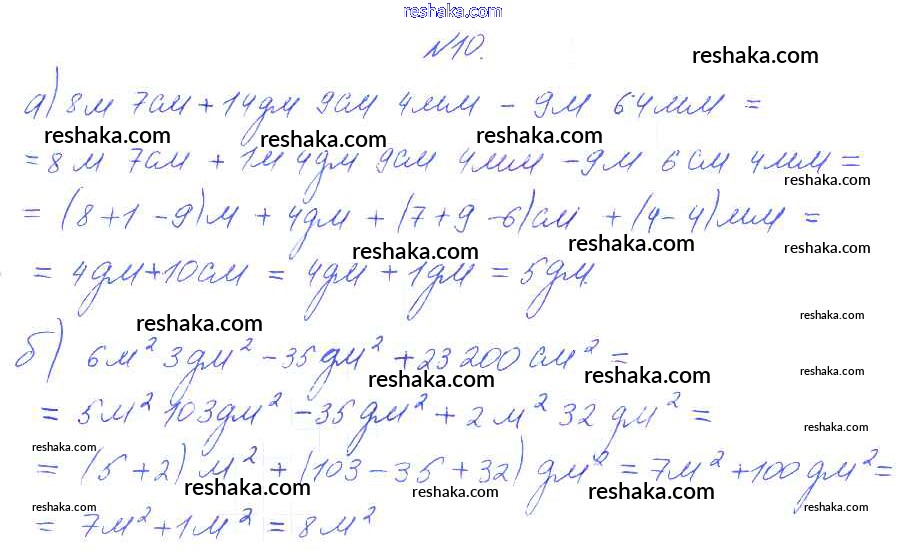 reshaka.com
№10.
reshaka.com
а) 8м 7см + 14дм 9см 4мм - 9м 64мм =
reshaka.com reshaka.com reshaka.com
= 8м 7см + 1м 4дм 9см 4мм - 9м 6см 4мм =
reshaka.com
= (8+1-9)м + 4дм + (7+9-6)см + (4-4)мм =
reshaka.com reshaka.com reshaka.com
= 4дм + 10см = 4дм + 1дм = 5дм.
reshaka.com reshaka.com
б) 6м² 3дм² - 35дм² + 23200см² =
reshaka.com reshaka.com reshaka.com
= 5м² 103дм² - 35дм² + 2м² 32дм² =
reshaka.com reshaka.com
= (5+2)м² + (103-35+32)дм² = 7м² + 100дм² =
reshaka.com reshaka.com reshaka.com
= 7м² + 1м² = 8м²
reshaka.com reshaka.com